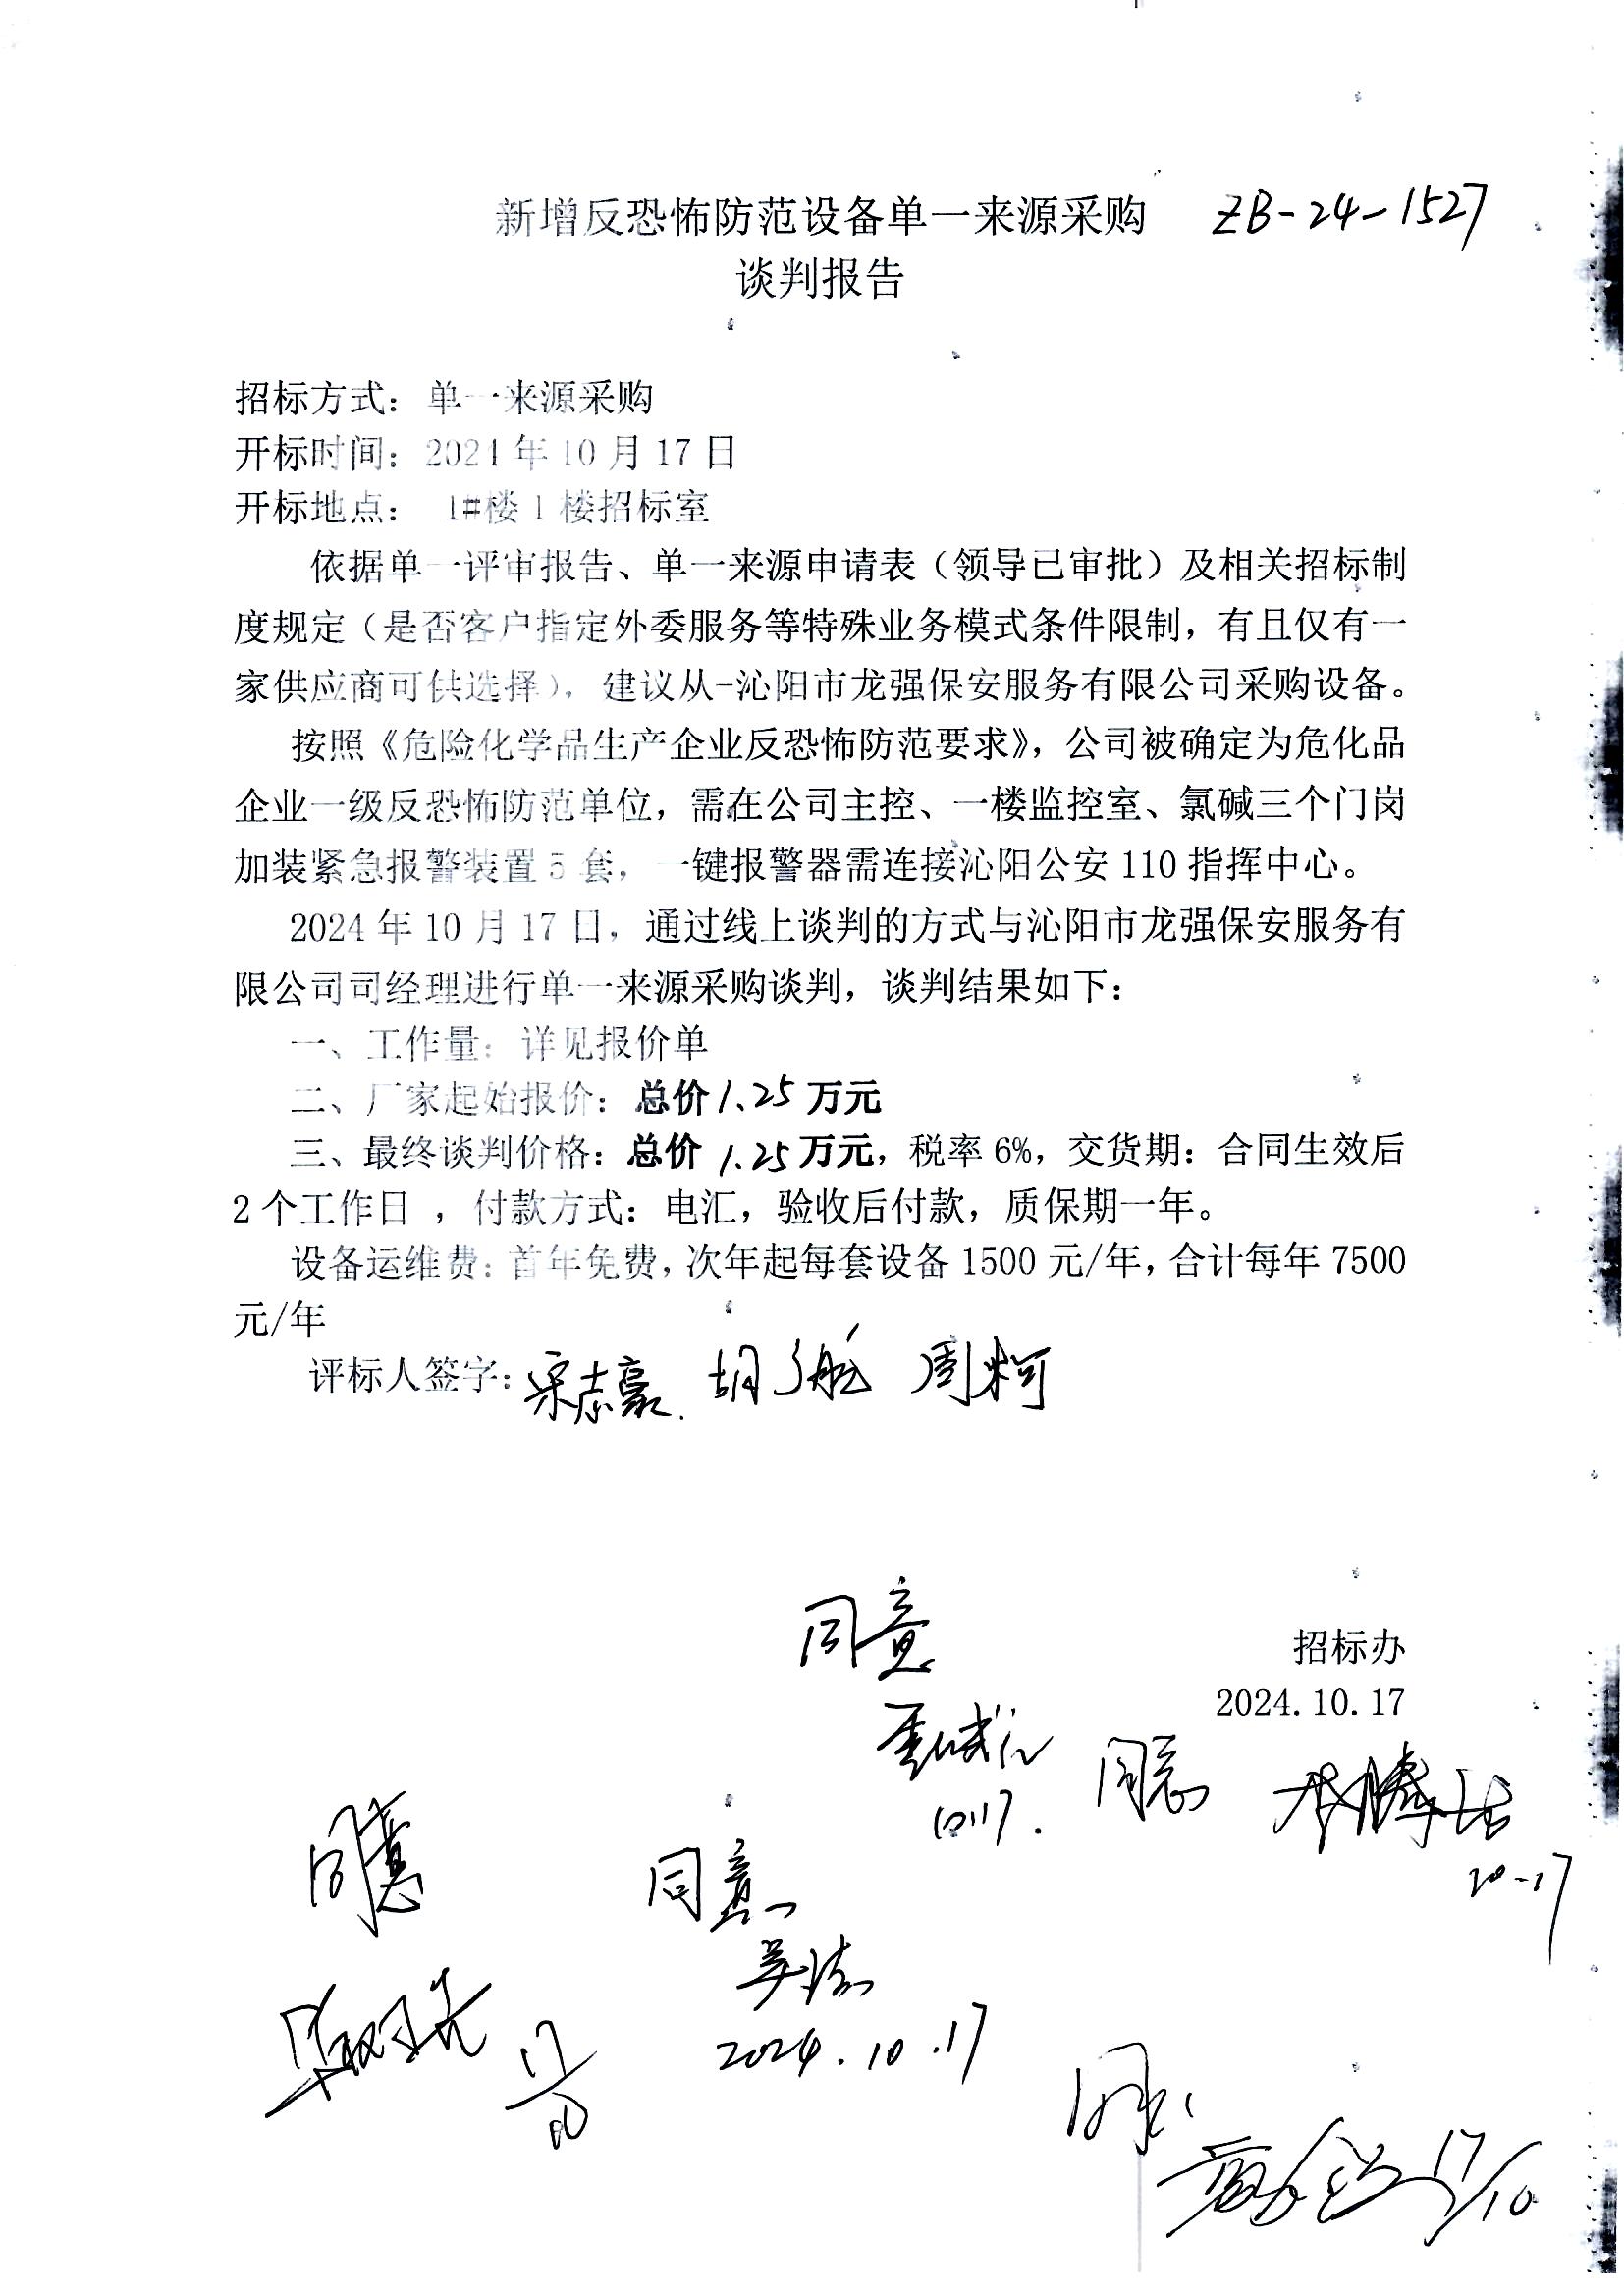 新增反恐怖防范设备单一来源采购 ZB-24-1527
谈判报告
招标方式：单一来源采购
开标时间：2024年10月17日
开标地点： 1#楼1楼招标室
依据单一评审报告、单一来源申请表（领导已审批）及相关招标制
度规定（是否客户指定外委服务等特殊业务模式条件限制，有且仅有一
家供应商可供选择），建议从-沁阳市龙强保安服务有限公司采购设备。
按照《危险化学品生产企业反恐怖防范要求》，公司被确定为危化品
企业一级反恐怖防范单位，需在公司主控、一楼监控室、氯碱三个门岗
加装紧急报警装置5套，一键报警器需连接沁阳公安110指挥中心。
2024年10月17日，通过线上谈判的方式与沁阳市龙强保安服务有
限公司司经理进行单一来源采购谈判，谈判结果如下：
一、工作量：详见报价单
二、厂家起始报价：总价1.25万元
三、最终谈判价格：总价1.25万元，税率6%，交货期：合同生效后
2个工作日 ，付款方式：电汇，验收后付款，质保期一年。
设备运维费：首年免费，次年起每套设备1500元/年，合计每年7500
元/年
评标人签字：宋志豪. 周柯
同意
招标办
2024.10.17
10.17.
同意
10-17
同意
同意
2024.10.17
17/10
同意
17/10